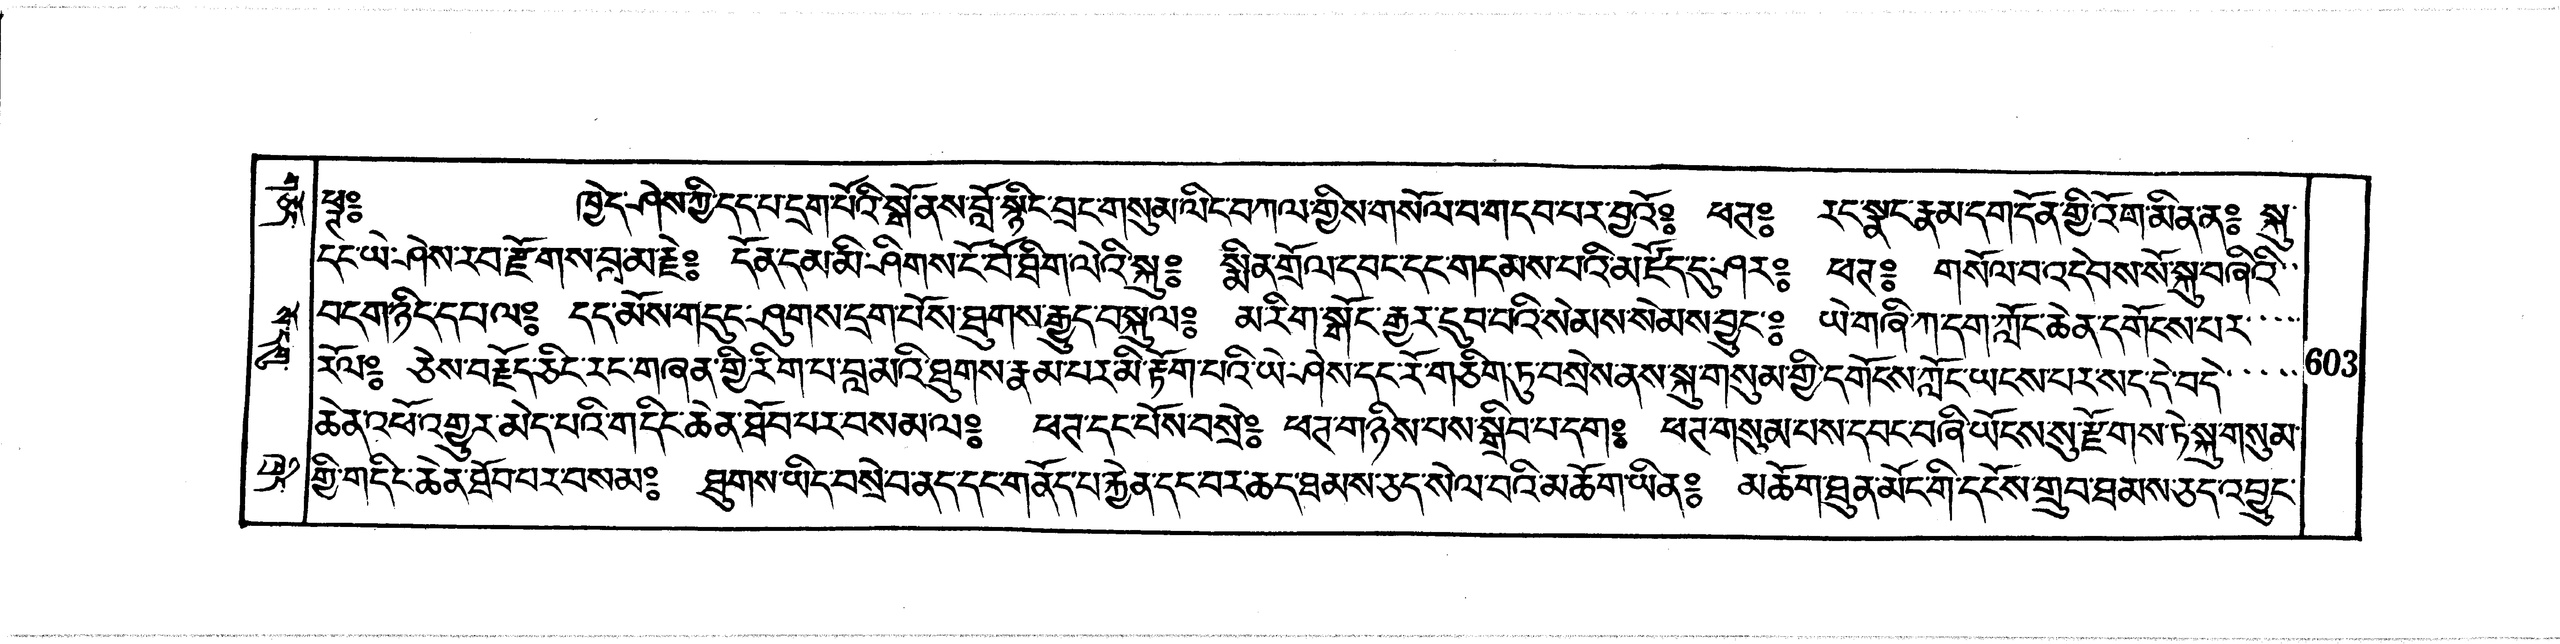 ཕཊ༔ ཁྱེད་ཤེས་ཀྱི་དད་པ་དྲག་པོའི་སྒོ་ནས་བློ་སྙིང་བྲང་གསུམ་ལིང་བཀལ་གྱིས་གསོལ་བ་གདབ་པར་བྱའོ༔ ཕཊ༔ རང་སྣང་རྣམ་དག་དོན་གྱི་འོག་མིན་ན༔ སྐུ་
དང་ཡེ་ཤེས་རབ་རྫོགས་བླ་མ་རྗེ༔ དོན་དམ་མི་ཤིགས་ངོ་བོ་ཐིག་ལེའི་སྐུ༔ སྨིན་གྲོལ་དབང་དང་གདམས་པའི་མཛོད་དུ་ཤར༔ ཕཊ༔ གསོལ་བ་འདེབས་སོ་སྐུ་བཞིའི་
བདག་ཉིད་དཔལ༔ དད་མོས་གདུང་ཤུགས་དྲག་པོས་ཐུགས་རྒྱུད་བསྐུལ༔ མ་རིག་སྒོང་རྒྱར་དུབ་བའི་སེམས་སེམས་བྱུང་༔ ཡེ་གཞི་ཀ་དག་ཀློང་ཆེན་དགོངས་པར་
རོལ༔ ཅེས་བརྗོད་ཅིང་རང་གཞན་གྱི་རིག་པ་བླ་མའི་ཐུགས་རྣམ་པར་མི་རྟོག་པའི་ཡེ་ཤེས་དང་རོ་གཅིག་ཏུ་བསྲེས་ནས་སྐུ་གསུམ་གྱི་དགོངས་ཀློང་ཡངས་པར་སད་དེ་བདེ་
603
ཆེན་འཕོ་འགྱུར་མེད་པའི་གདིང་ཆེན་ཐོབ་པར་བསམ་ལ༔ ཕཊ་དང་པོས་བསྲེ༔ ཕཊ་གཉིས་པས་སྒྲིབ་པ་དག༔ ཕཊ་གསུམ་པས་དབང་བཞི་ཡོངས་སུ་རྫོགས་ཏེ་སྐུ་གསུམ་
གྱི་གདིང་ཆེན་ཐོབ་པར་བསམ༔ ཐུགས་ཡིད་བསྲེ་བ་ནད་དང་གནོད་པ་རྐྱེན་དང་བར་ཆད་ཐམས་ཅད་སེལ་བའི་མཆོག་ཡིན༔ མཆོག་ཐུན་མོང་གི་དངོས་གྲུབ་ཐམས་ཅད་འབྱུང་